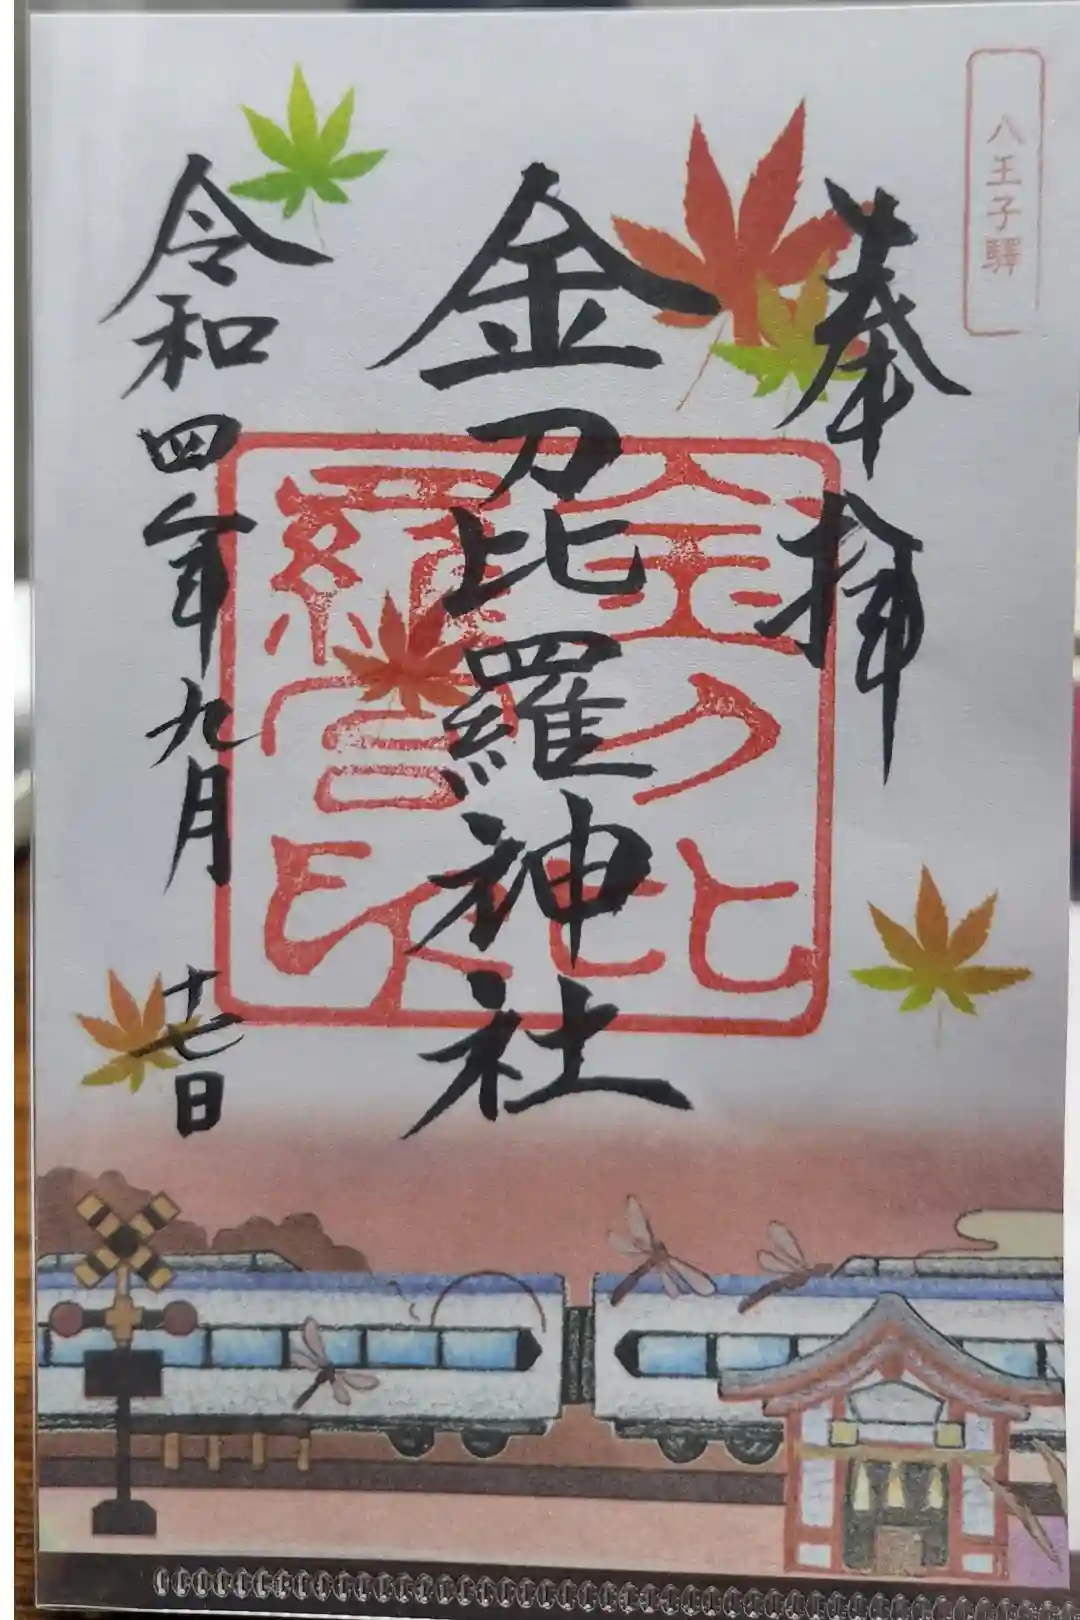 八王子驛
奉拝
金刀比羅神社
金刀比
羅宮印
令和四年九月十七日